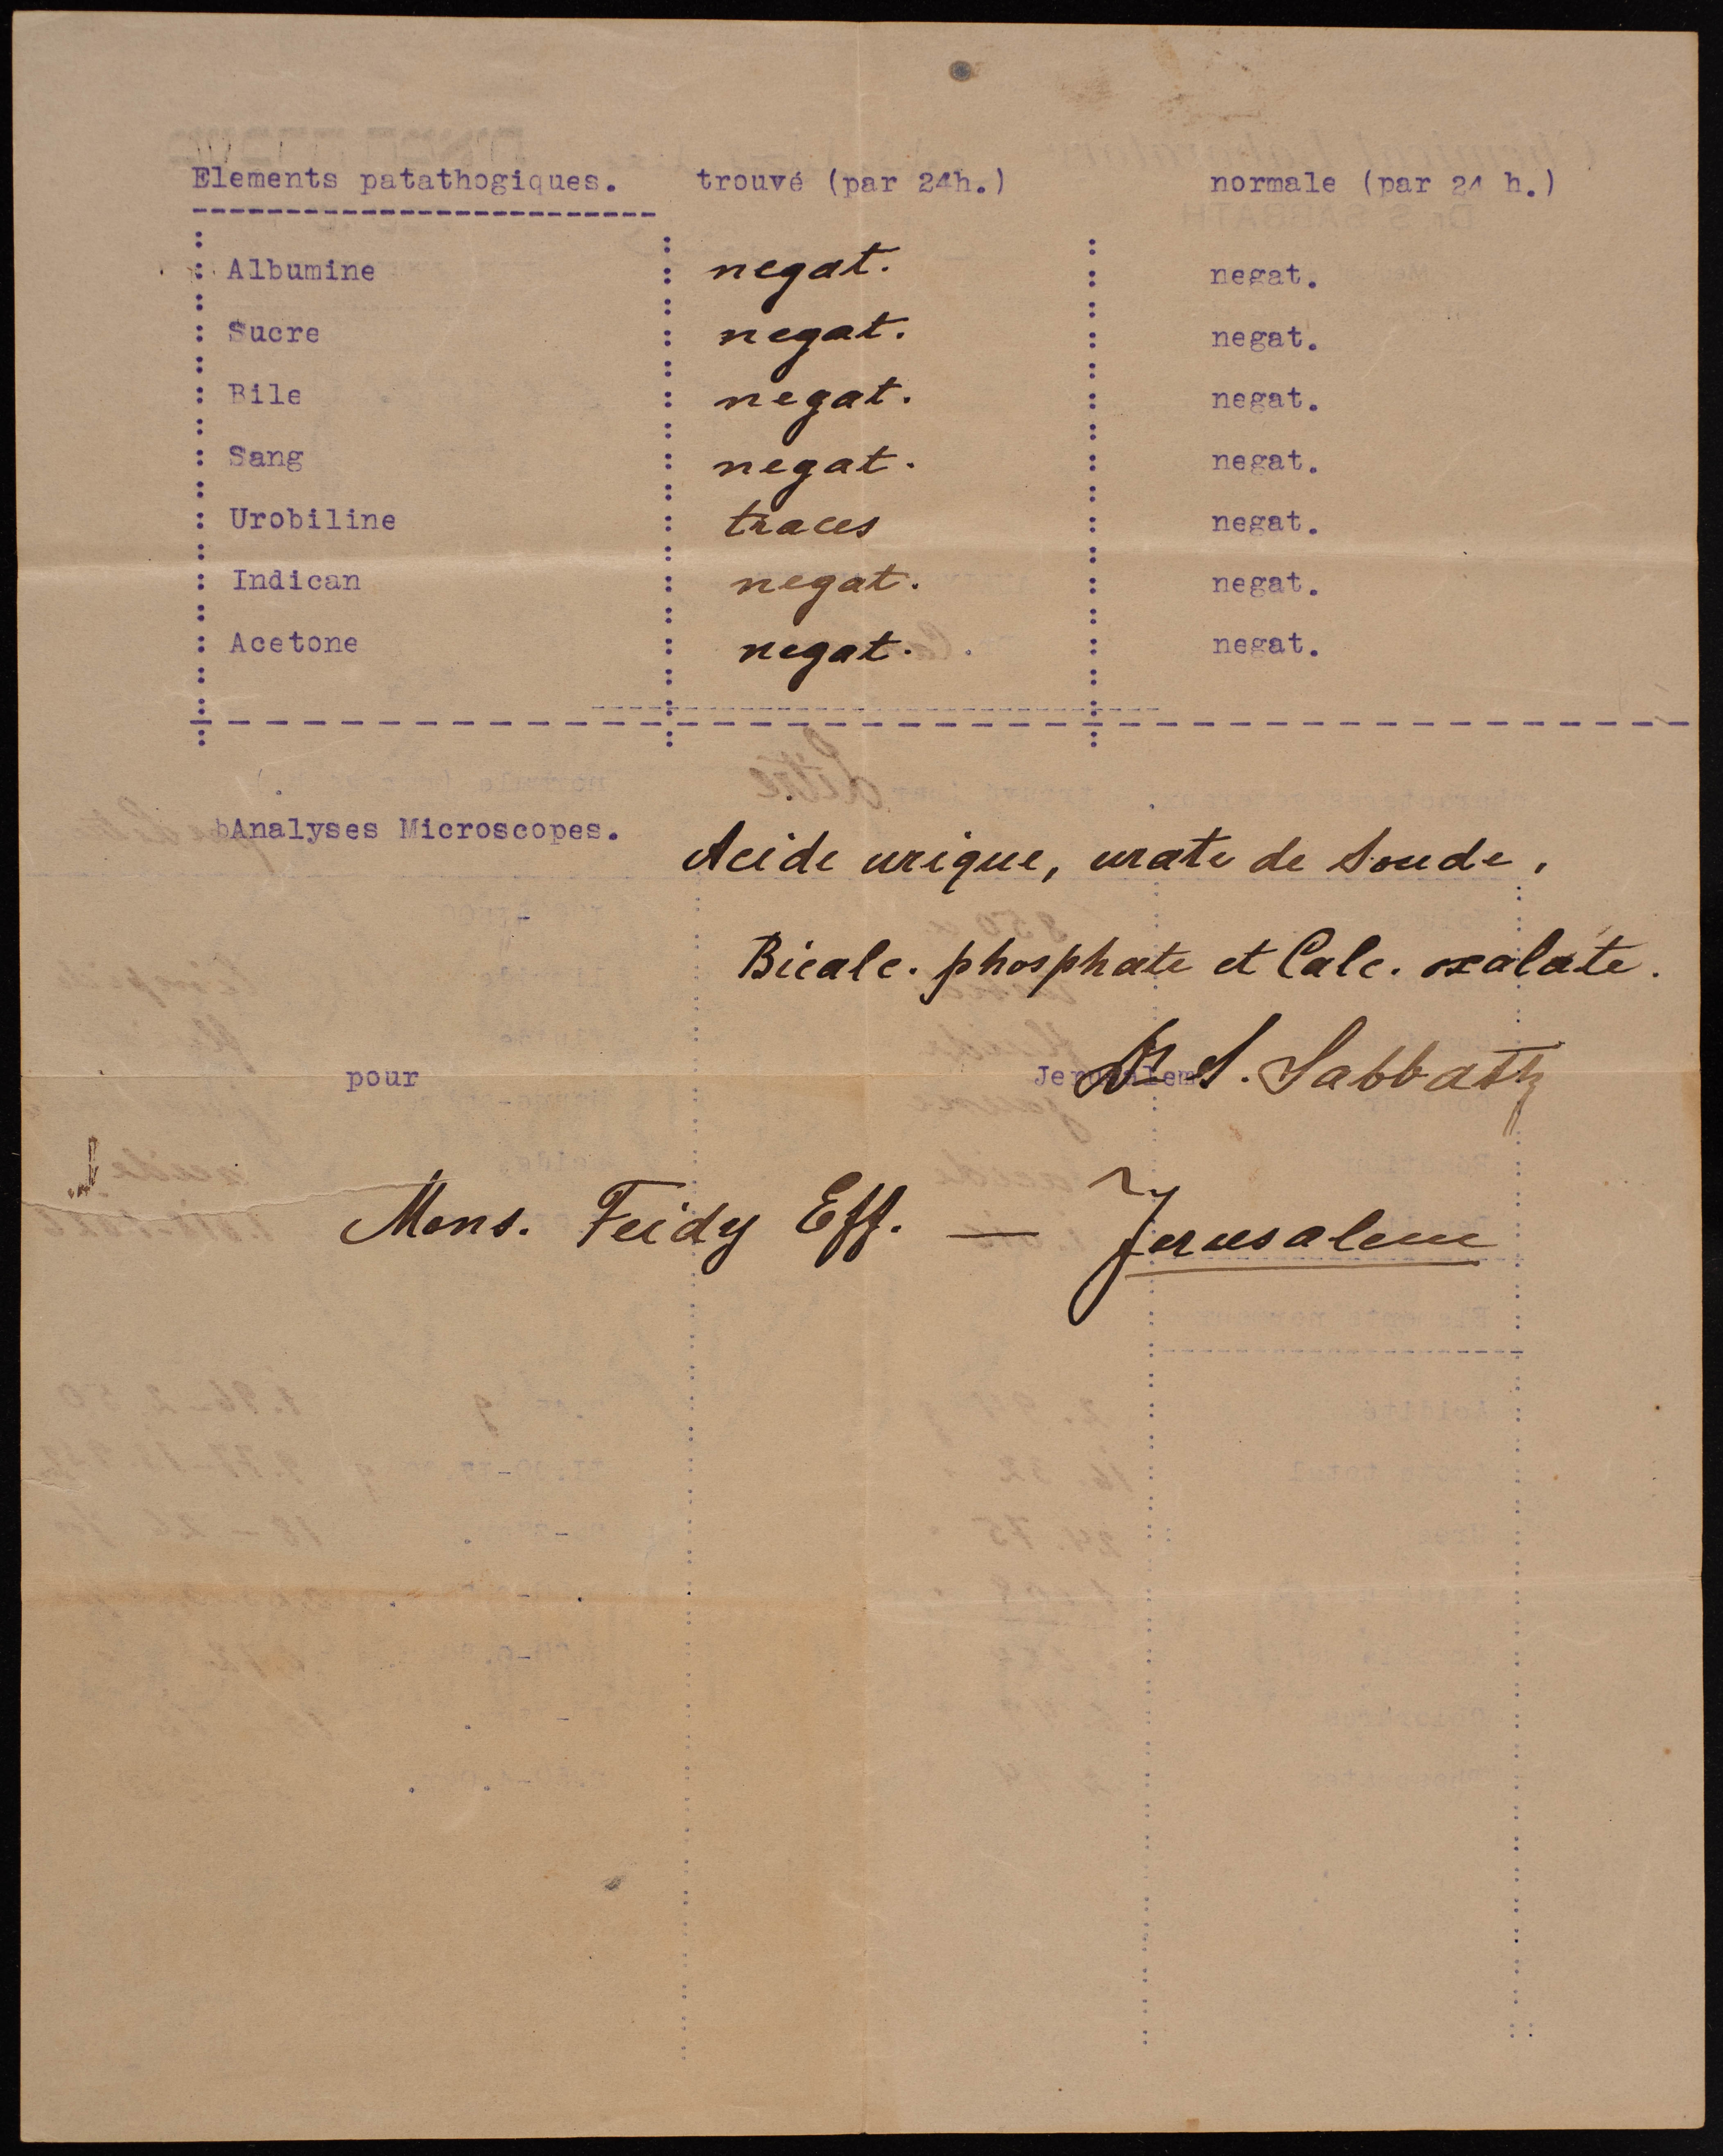 Elements patathogiques. trouvé (par 24h.) normale (par 24 h.)
Albumine negat. negat.
Sucre negat. negat.
Bile negat. negat.
Sang negat. negat.
Urobiline traces negat.
Indican negat. negat.
Acetone negat. negat.
bAnalyses Microscopes.
Acide urique, urate de soude,
Bicalc. phosphate et Calc. oxalate.
pour Jerusalem Dr S. Sabbath
Mons. Feidy Eff. — Jerusalem